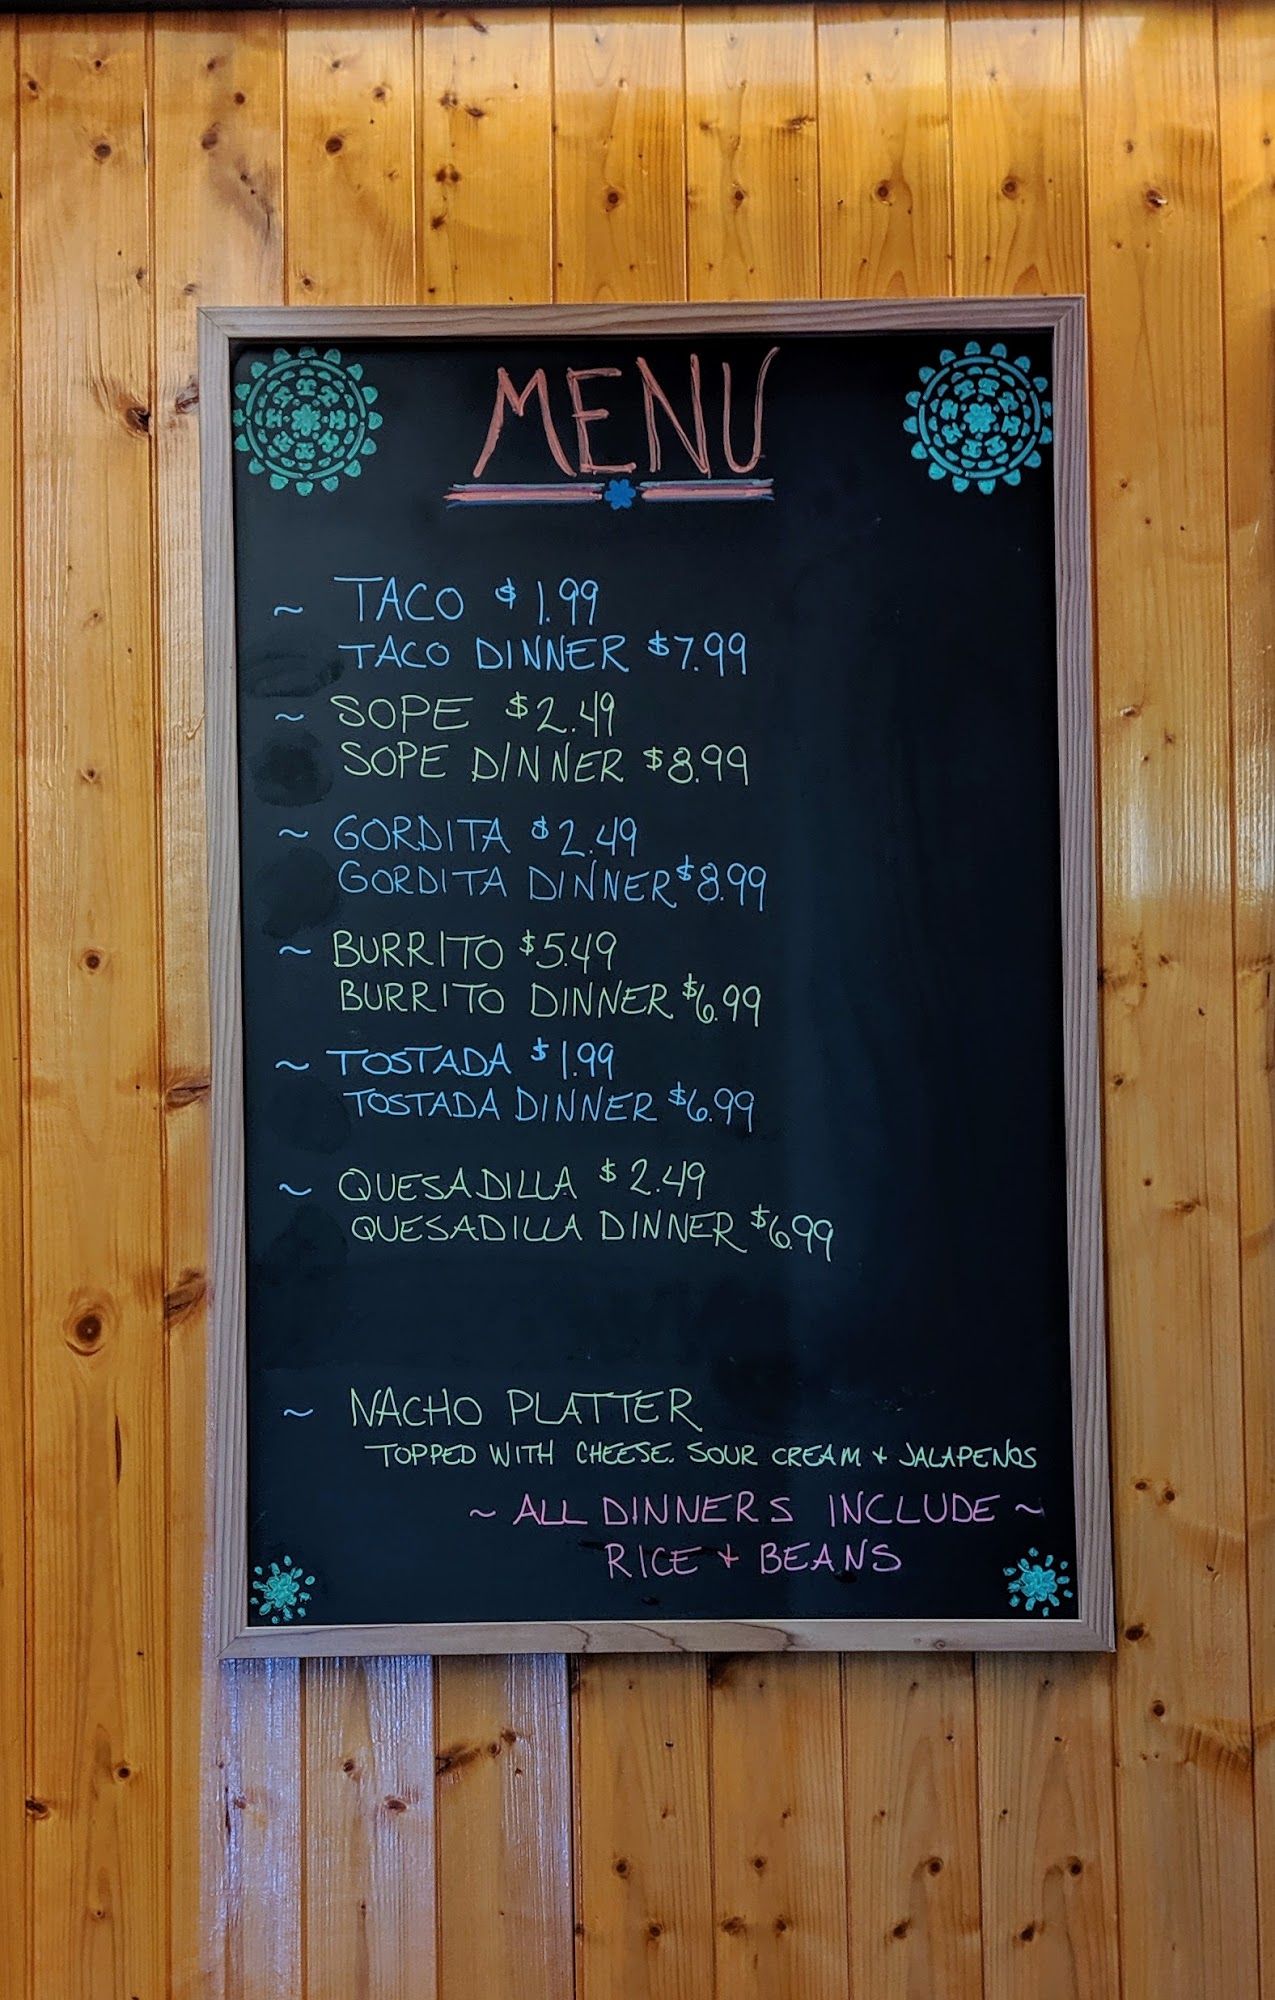 MENU
~ TACO $1.99
TACO DINNER $7.99
~ SOPE $2.49
SOPE DINNER $8.99
~ GORDITA $2.49
GORDITA DINNER $8.99
~ BURRITO $5.49
BURRITO DINNER $6.99
~ TOSTADA $1.99
TOSTADA DINNER $6.99
~ QUESADILLA $2.49
QUESADILLA DINNER $6.99
~ NACHO PLATTER
TOPPED WITH CHEESE. SOUR CREAM + JALAPENOS
~ ALL DINNERS INCLUDE ~
RICE + BEANS